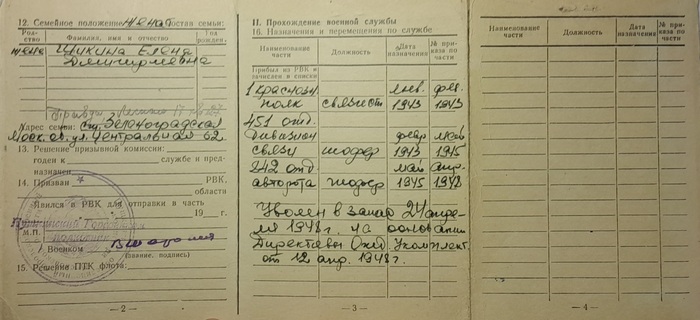 12. Семейное положение женат
Состав семьи:
Родство
Фамилия, имя и отчество
Год рожден.
жена Шикина Елена
Дмитриевна
Адрес семьи: ст. Зеленоградская
Моск. об. ул. Центральная 62
13. Решение призывной комиссии:
годен к службе и пред-
назначен
14. Призван РВК.
области
Явился в РВК для отправки в часть
19 г.
М.П.
Военком
(звание, подпись)
15. Решение ПТК флота:
— 2 —
II. Прохождение военной службы
16. Назначения и перемещения по службе
Наименование части
Должность
Дата назначения
№ приказа по части
Прибыл из РВК и
зачислен в списки
1 Краснозн. янв. фев.
полк связист 1943 1943
451 отд.
Дивизион февр май
связи шофер 1943 1945
242 отд май апр.
авторота шофер 1945 1948
Уволен в запас 24 апре-
ля 1948 г. на основании
Директивы
от 12 апр. 1948 г.
— 3 —
Наименование части
Должность
Дата назначения
№ приказа по части
— 4 —